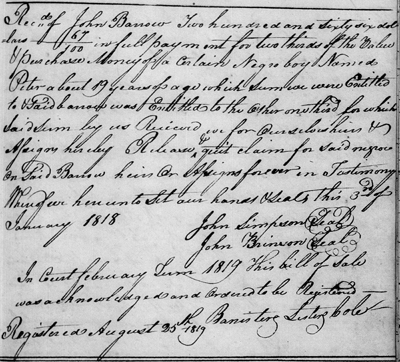 Recd. of John Barrow Two hundred and sixty six dol
lars 67/100 in full payment for two thirds of the Value
& purchase Money of a Certain Negro boy Named
Peter about 19 years of age which sum we were Entitled
to & said barrow was Entitled to the other one third for which
said sum by us Received we for Ourselves heirs &
Assigns hereby Release & quit claim for said negroe
On Said Barow heirs Or Assigns forever in Testimony
Whereof we hereunto set our hands & seals this 3rd of
January 1818
John Simpson (Seal)
John Brinson (Seal)
In Court february Term 1819 This bill of Sale
was acknowledged and Ordered to be Registered
Registered August 25th 1819 Banister Lister